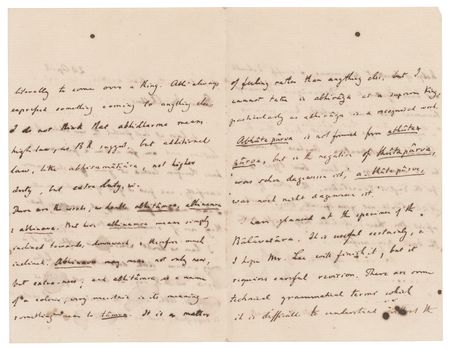 literally to come over a thing. Abhi always
expressed something coming to anything else
I do not think that abhidharma means
high law, as B R suggest, but additional
law, like abhisamâcâra, not higher
duty, but extra duty,
There are the words, no doubt abhitâmra, abhinamra
& abhinava. But here abhinamra means simply
inclined towards, downward, & therefore much
inclined. Abhinava may mean not only new,
but extra-new, and abhitâmra, as a name
of a colour, very uncertain in its meaning
something near to tâmra. It is a matter
of feeling rather than anything else, but I
cannot take in abhirâga as a supreme king
particularly as abhirâga is a recognised word.
Abhûtapûrva is not formed from abhûta +
pûrva, but is the negative of bhûtapûrva,
'was schon dagewesen ist', a-bhûtapûrva,
was noch nicht dagewesen ist'
I have glanced at the specimen of the
Bâlâvatâra. It is useful certainly, &
I hope Mr. Lee will finish it, but it
requires careful revision. There are some
technical grammatical terms which
it is difficult to understand without the